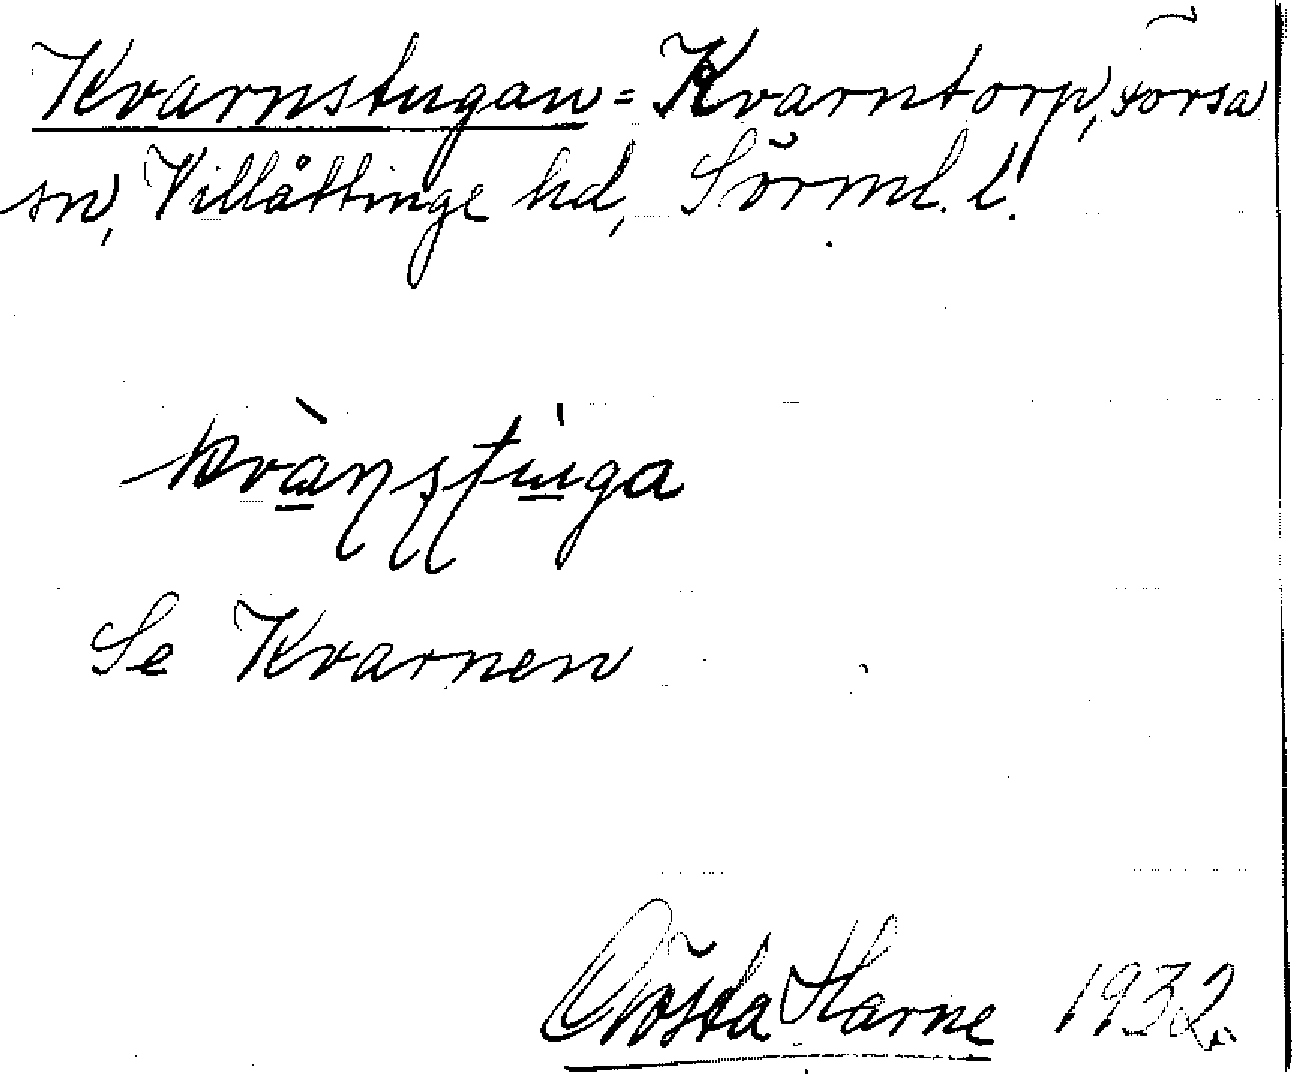 Kvarnstugan = Kvarntorp, Forsa
sn, Villåttinge hd, Sörml. l.
kvàn̥stúga
Se Kvarnen
Gösta Harne 1932.